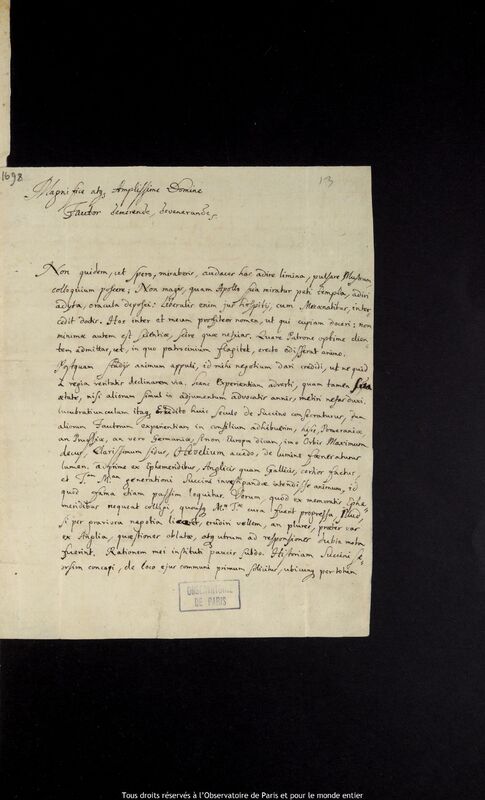 1698
13
Magnifice atq; Amplissime Domine
Fautor devenerande,
Non quidem, ut spero, miraberis, audacter hæc adire limina, pulsare Musæum,
colloquium poscere; Non magis, quam Apollo sua miratur peti templa, adiri
adyta, oracula deposci: Liberalis enim jus hospitij, cum Mecænatitur, inter=
cedit doctis. Hos inter et meum profiteor nomen, ut qui cupiam doceri: non
minimæ autem est scientiæ, scire quæ nesciar. Quare Patrone optime clien=
tem admittas, et, in quo patrocinium flagitet, erecto edisserat animo.
Postquam studijs animum appuli, id mihi negotium dari credidi, ut ne quid
a regia veritatis declinarem via, sens Experientiam adverti, quam tamen
ætate, nisi aliorum simul in adjumentum advocatis annis, metiri nefas duxi.
Lucubratiunculam itaq; Erudito huic seculo de Succino consecraturus, dum
aliorum Fautorum experientiam in consilium adhibuerim, hisce Pomeraniæ
an Prussiæ, an vero Germaniæ, si non Europæ dicam, imo Orbis Maximum
decus, Clarissimum sidus, Hevelium accedo, de lumine fæneraturus
lumen. ex Ephemeridibus, Anglicis quam Gallicis, certior factus,
et T. M. generationi Succini investigandæ intendisse animum, id
quod fama etiam passim loquitur. Verum, quod ex memoratis Ephe=
meridibus nequeat colligi, quousq; M. T. cura fuerit progressa,
si per graviora negotia liceret, erudiri vellem, an plures, præter eas
ex Anglia, quæstiones oblatæ, atq; utrum ad responsiones dubia mota
fuerint. Rationem mei instituti paucis subdo. Historiam Succini se=
orsim concepi, de loco ejus communi primum sollicitus, ubicunq; per totum
OBSERVATOIRE
DE PARIS
Tous droits réservés à l'Observatoire de Paris et pour le monde entier